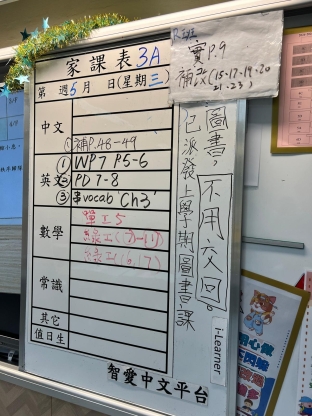 家課表 3A
第 週5月 日(星期三)
中文
①補P.48-49
英文
① WP7 P5-6
② PD 7-8
③ 串vocab 'Ch3'
數學
常識
其它
值日生
智愛中文平台
P.9
補改(15-17-19-20
21-23)
圖書
不用交回
已派發上學期圖書課
i-Learner